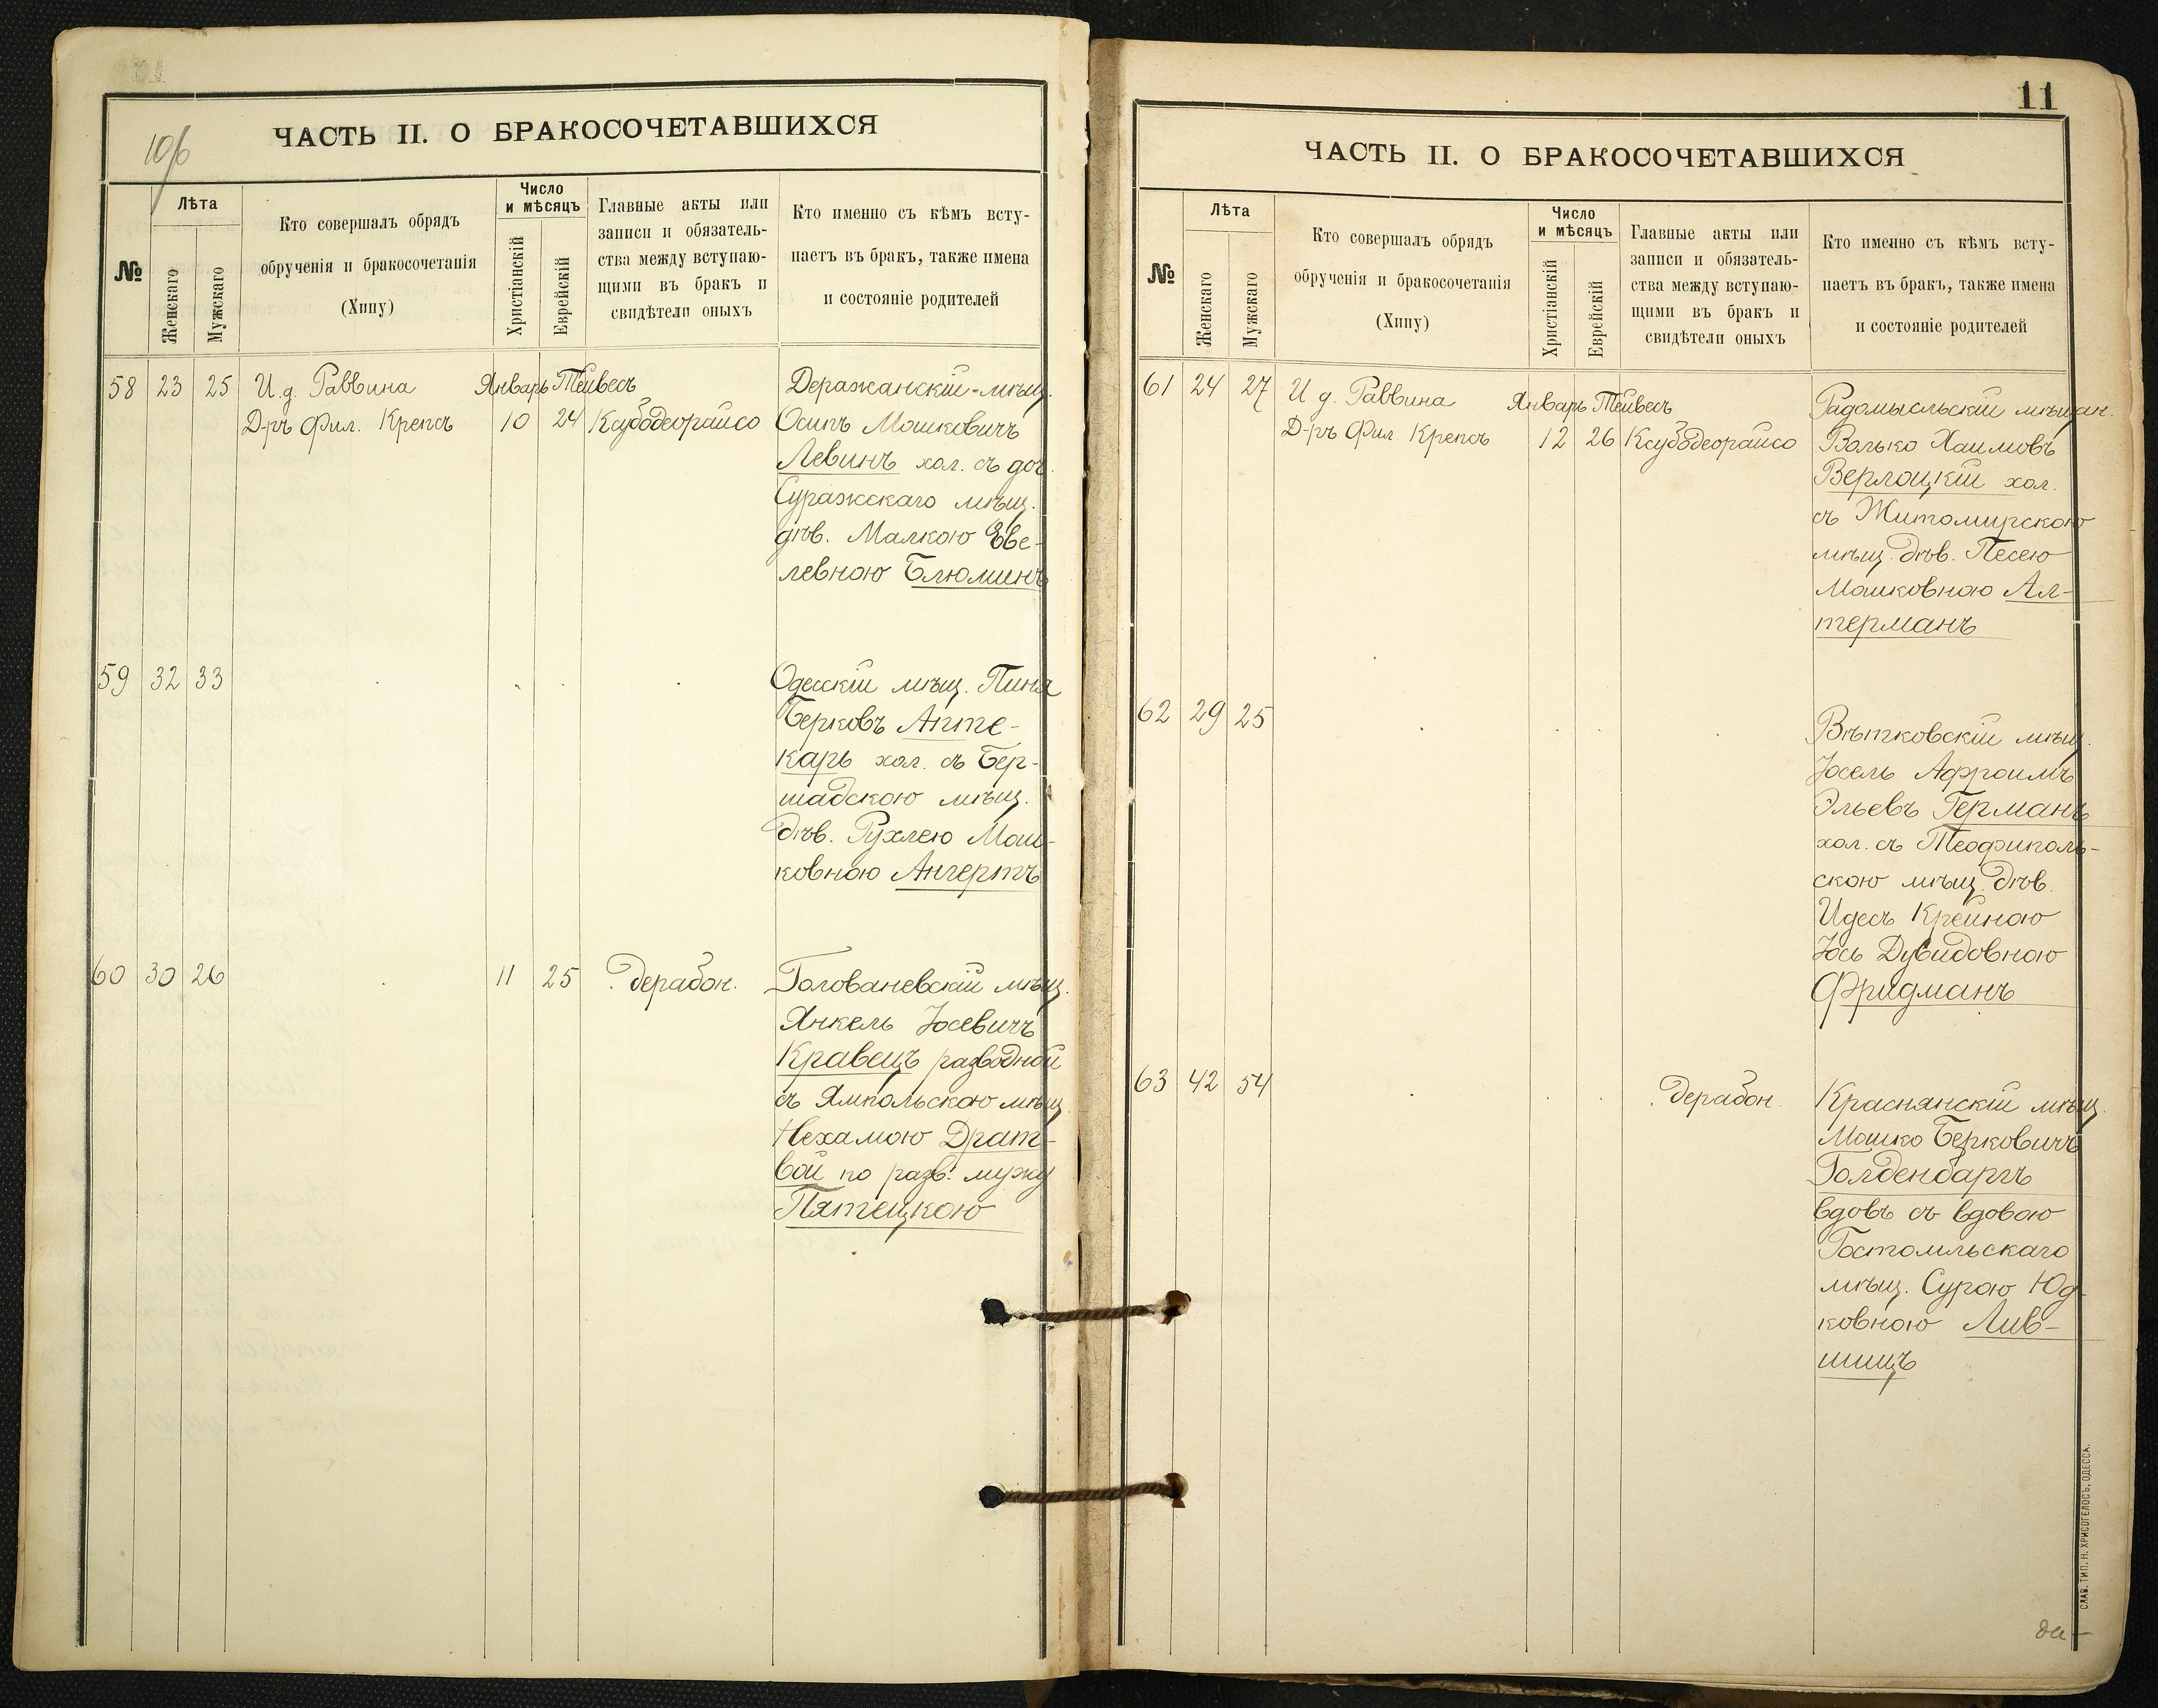 10/б
ЧАСТЬ II. О БРАКОСОЧЕТАВШИХСЯ
№
Лѣта
Женскаго
Мужскаго
Кто совершалъ обрядъ
обрученія и бракосочетанія
(Хипу)
Число
и мѣсяцъ
Христіанскій
Еврейскій
Главные акты или
записи и обязатель-
ства между вступаю-
щими въ бракъ и
свидѣтели оныхъ
Кто именно съ кѣмъ всту-
паетъ въ бракъ, также имена
и состояніе родителей
58 23 25 И. д. Раввина Январь Тейвесъ Деражанскій мѣщ.
Д-ръ Фил. Крепсъ 10 24 Ксубодеорайсо Осипъ Мошковичъ
Левинъ хол. съ доч.
Суражскаго мѣщ.
дѣв. Малкою Эве-
левною Блюминъ
59 32 33 Одесскій мѣщ. Пиня
Берковъ Апте-
карь хол. съ Бер-
шадскою мѣщ.
дѣв. Рухлею Мош-
ковною Ангертъ
60 30 26 11 25 дерабон. Голованевскій мѣщ.
Янкель Іосевичъ
Кравецъ разводной
съ Ямпольскою мѣщ
Нехамою Драт-
вой по разв. мужу
Пятецкою
11
ЧАСТЬ II. О БРАКОСОЧЕТАВШИХСЯ
№
Лѣта
Женскаго
Мужскаго
Кто совершалъ обрядъ
обрученія и бракосочетанія
(Хипу)
Число
и мѣсяцъ
Христіанскій
Еврейскій
Главные акты или
записи и обязатель-
ства между вступаю-
щими въ бракъ и
свидѣтели оныхъ
Кто именно съ кѣмъ всту-
паетъ въ бракъ, также имена
и состояніе родителей
61 24 27 И. д. Раввина Январь Тейвесъ Радомысльскій мѣщан.
Д-ръ Фил. Крепсъ 12 26 Ксубодеорайсо Волько Хаимовъ
Верлоцкій хол.
съ Житомирскою
мѣщ. дѣв. Песею
Мошковною Ал-
терманъ
62 29 25 Вѣтковскій мѣщ.
Іосель Афроимъ
Эльевъ Германъ
хол. съ Теофиполь-
скою мѣщ. дѣв.
Идесъ Крейною
Іось Дувидовною
Фридманъ
63 42 54 дерабон. Краснянскій мѣщ.
Мошко Берковичъ
Голденбаргъ
вдовъ съ вдовою
Гостомльскаго
мѣщ. Сурою Юд-
ковною Лив-
шицъ
СЛАВ. ТИП. Н. ХРИСОГЕЛОСЪ, ОДЕССА.